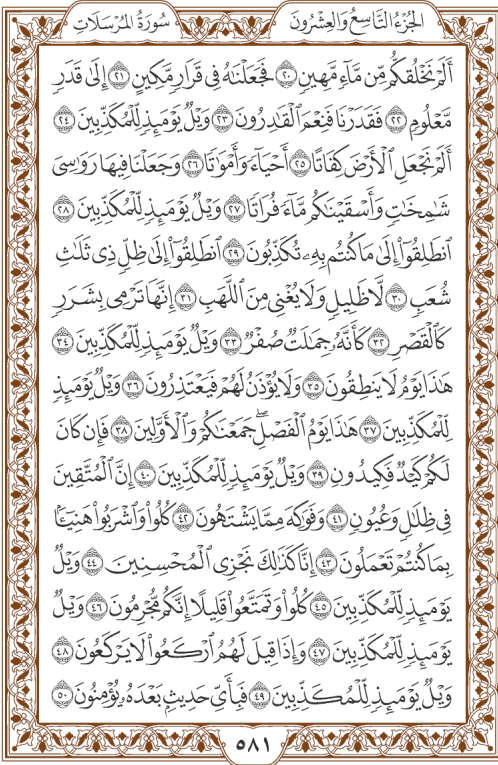 سُورَةُ المُرۡسَلَات
الجُزۡءُ التَّاسِعُ وَالعِشۡرُونَ
أَلَمۡ نَخۡلُقكُّم مِّن مَّآءٖ مَّهِينٖ ٢٠ فَجَعَلۡنَٰهُ فِي قَرَارٖ مَّكِينٍ ٢١ إِلَىٰ قَدَرٖ
مَّعۡلُومٖ ٢٢ فَقَدَرۡنَا فَنِعۡمَ ٱلۡقَٰدِرُونَ ٢٣ وَيۡلٞ يَوۡمَئِذٖ لِّلۡمُكَذِّبِينَ ٢٤
أَلَمۡ نَجۡعَلِ ٱلۡأَرۡضَ كِفَاتًا ٢٥ أَحۡيَآءٗ وَأَمۡوَٰتٗا ٢٦ وَجَعَلۡنَا فِيهَا رَوَٰسِيَ
شَٰمِخَٰتٖ وَأَسۡقَيۡنَٰكُم مَّآءٗ فُرَاتٗا ٢٧ وَيۡلٞ يَوۡمَئِذٖ لِّلۡمُكَذِّبِينَ ٢٨
ٱنطَلِقُوٓاْ إِلَىٰ مَا كُنتُم بِهِۦ تُكَذِّبُونَ ٢٩ ٱنطَلِقُوٓاْ إِلَىٰ ظِلّٖ ذِي ثَلَٰثِ
شُعَبٖ ٣٠ لَّا ظَلِيلٖ وَلَا يُغۡنِي مِنَ ٱللَّهَبِ ٣١ إِنَّهَا تَرۡمِي بِشَرَرٖ
كَٱلۡقَصۡرِ ٣٢ كَأَنَّهُۥ جِمَٰلَتٞ صُفۡرٞ ٣٣ وَيۡلٞ يَوۡمَئِذٖ لِّلۡمُكَذِّبِينَ ٣٤
هَٰذَا يَوۡمُ لَا يَنطِقُونَ ٣٥ وَلَا يُؤۡذَنُ لَهُمۡ فَيَعۡتَذِرُونَ ٣٦ وَيۡلٞ يَوۡمَئِذٖ
لِّلۡمُكَذِّبِينَ ٣٧ هَٰذَا يَوۡمُ ٱلۡفَصۡلِۖ جَمَعۡنَٰكُمۡ وَٱلۡأَوَّلِينَ ٣٨ فَإِن كَانَ
لَكُمۡ كَيۡدٞ فَكِيدُونِ ٣٩ وَيۡلٞ يَوۡمَئِذٖ لِّلۡمُكَذِّبِينَ ٤٠ إِنَّ ٱلۡمُتَّقِينَ
فِي ظِلَٰلٖ وَعُيُونٖ ٤١ وَفَوَٰكِهَ مِمَّا يَشۡتَهُونَ ٤٢ كُلُواْ وَٱشۡرَبُواْ هَنِيٓـَٔۢا
بِمَا كُنتُمۡ تَعۡمَلُونَ ٤٣ إِنَّا كَذَٰلِكَ نَجۡزِي ٱلۡمُحۡسِنِينَ ٤٤ وَيۡلٞ
يَوۡمَئِذٖ لِّلۡمُكَذِّبِينَ ٤٥ كُلُواْ وَتَمَتَّعُواْ قَلِيلًا إِنَّكُم مُّجۡرِمُونَ ٤٦ وَيۡلٞ
يَوۡمَئِذٖ لِّلۡمُكَذِّبِينَ ٤٧ وَإِذَا قِيلَ لَهُمُ ٱرۡكَعُواْ لَا يَرۡكَعُونَ ٤٨
وَيۡلٞ يَوۡمَئِذٖ لِّلۡمُكَذِّبِينَ ٤٩ فَبِأَيِّ حَدِيثِۭ بَعۡدَهُۥ يُؤۡمِنُونَ ٥٠
٥٨١